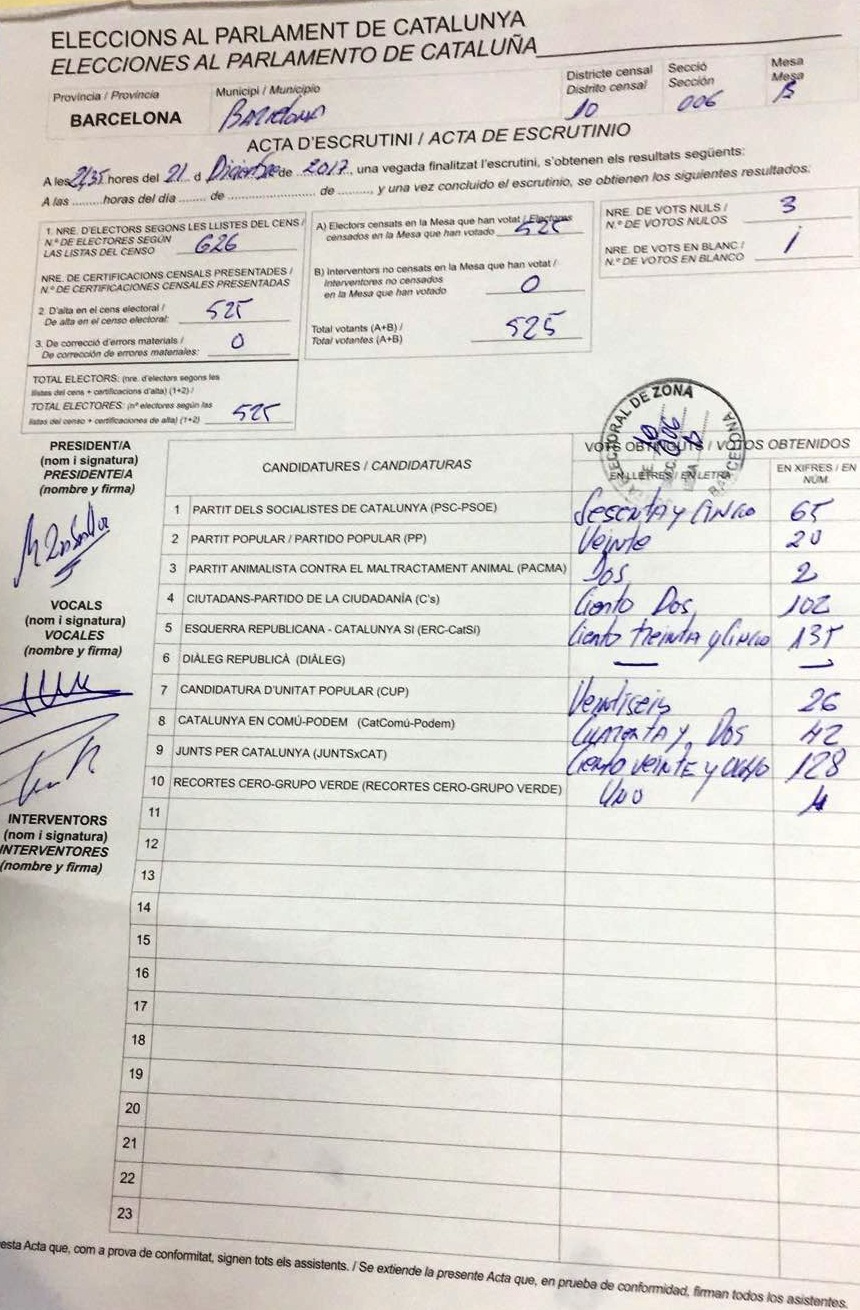 ELECCIONS AL PARLAMENT DE CATALUNYA
ELECCIONES AL PARLAMENTO DE CATALUÑA
Província / Provincia
BARCELONA
Municipi / Municipio
Barcelona
Districte censal
Distrito censal
10
Secció
Sección
006
Mesa
Mesa
B
ACTA D'ESCRUTINI / ACTA DE ESCRUTINIO
A les 21/35 hores del 21 d Diciembre de 2017, una vegada finalitzat l'escrutini, s'obtenen els resultats següents:
A las ......... horas del día ........ de ........................ de ........., y una vez concluido el escrutinio, se obtienen los siguientes resultados:
1. NRE. D'ELECTORS SEGONS LES LLISTES DEL CENS /
N.º DE ELECTORES SEGÚN
LAS LISTAS DEL CENSO 626
NRE. DE CERTIFICACIONS CENSALS PRESENTADES /
N.º DE CERTIFICACIONES CENSALES PRESENTADAS
2. D'alta en el cens electoral /
De alta en el censo electoral: 525
3. De correcció d'errors materials /
De corrección de errores materiales: 0
TOTAL ELECTORS: (nre. d'electors segons les
llistes del cens + certificacions d'alta) (1+2) /
TOTAL ELECTORES: (nº electores según las
listas del censo + certificaciones de alta) (1+2) 525
A) Electors censats en la Mesa que han votat / Electores
censados en la Mesa que han votado 525
B) Interventors no censats en la Mesa que han votat /
Interventores no censados
en la Mesa que han votado 0
Total votants (A+B) /
Total votantes (A+B) 525
NRE. DE VOTS NULS /
N.º DE VOTOS NULOS 3
NRE. DE VOTS EN BLANC /
N.º DE VOTOS EN BLANCO 1
PRESIDENT/A
(nom i signatura)
PRESIDENTE/A
(nombre y firma)
VOCALS
(nom i signatura)
VOCALES
(nombre y firma)
INTERVENTORS
(nom i signatura)
INTERVENTORES
(nombre y firma)
ELECTORAL DE ZONA
BARCELONA
10
006
B
CANDIDATURES / CANDIDATURAS
VOTS OBTINGUTS / VOTOS OBTENIDOS
EN LLETRES / EN LETRA
EN XIFRES / EN NÚM.
1 PARTIT DELS SOCIALISTES DE CATALUNYA (PSC-PSOE) Sesenta y cinco 65
2 PARTIT POPULAR / PARTIDO POPULAR (PP) Veinte 20
3 PARTIT ANIMALISTA CONTRA EL MALTRACTAMENT ANIMAL (PACMA) Dos 2
4 CIUTADANS-PARTIDO DE LA CIUDADANÍA (C's) Ciento Dos 102
5 ESQUERRA REPUBLICANA - CATALUNYA SÍ (ERC-CatSí) Ciento treinta y cinco 135
6 DIÀLEG REPUBLICÀ (DIÀLEG) — —
7 CANDIDATURA D'UNITAT POPULAR (CUP) Ventiseis 26
8 CATALUNYA EN COMÚ-PODEM (CatComú-Podem) Cuarenta y Dos 42
9 JUNTS PER CATALUNYA (JUNTSxCAT) Ciento veinte y ocho 128
10 RECORTES CERO-GRUPO VERDE (RECORTES CERO-GRUPO VERDE) Uno 1
11
12
13
14
15
16
17
18
19
20
21
22
23
esta Acta que, com a prova de conformitat, signen tots els assistents. / Se extiende la presente Acta que, en prueba de conformidad, firman todos los asistentes.